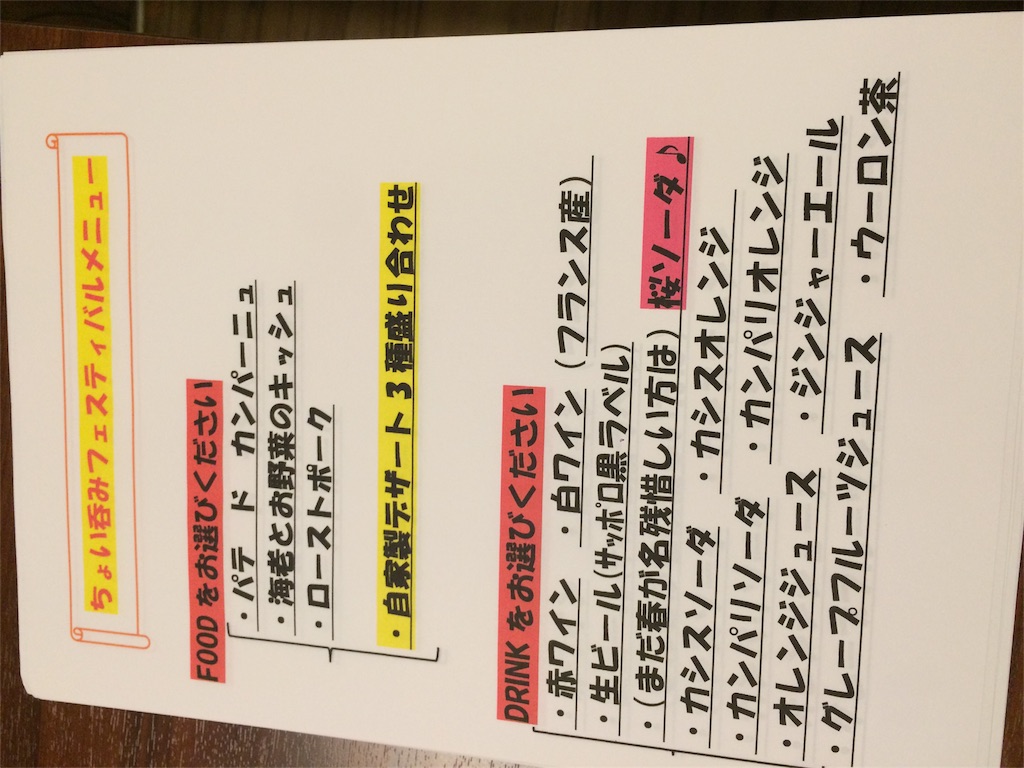 ちょい呑みフェスティバルメニュー
FOODをお選びください
・パテ ド カンパーニュ
・海老とお野菜のキッシュ
・ローストポーク
・自家製デザート3種盛り合わせ
DRINKをお選びください
・赤ワイン ・白ワイン(フランス産)
・生ビール(サッポロ黒ラベル)
・(まだ春が名残惜しい方は)桜ソーダ♪
・カシスソーダ ・カシスオレンジ
・カンパリソーダ ・カンパリオレンジ
・オレンジジュース ・ジンジャーエール
・グレープフルーツジュース ・ウーロン茶